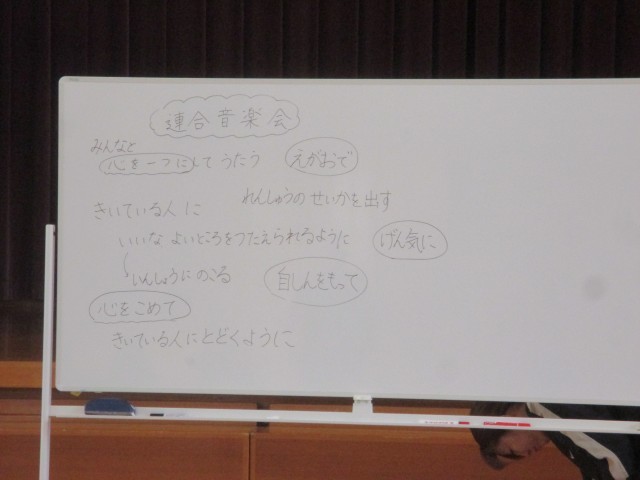 連合音楽会
みんなと
心を一つにして うたう えがおで
れんしゅうの せいかを出す
きいている人に
いいな よいところをつたえられるように げん気に
いんしょうにのこる 自しんをもって
心をこめて
きいている人にとどくように